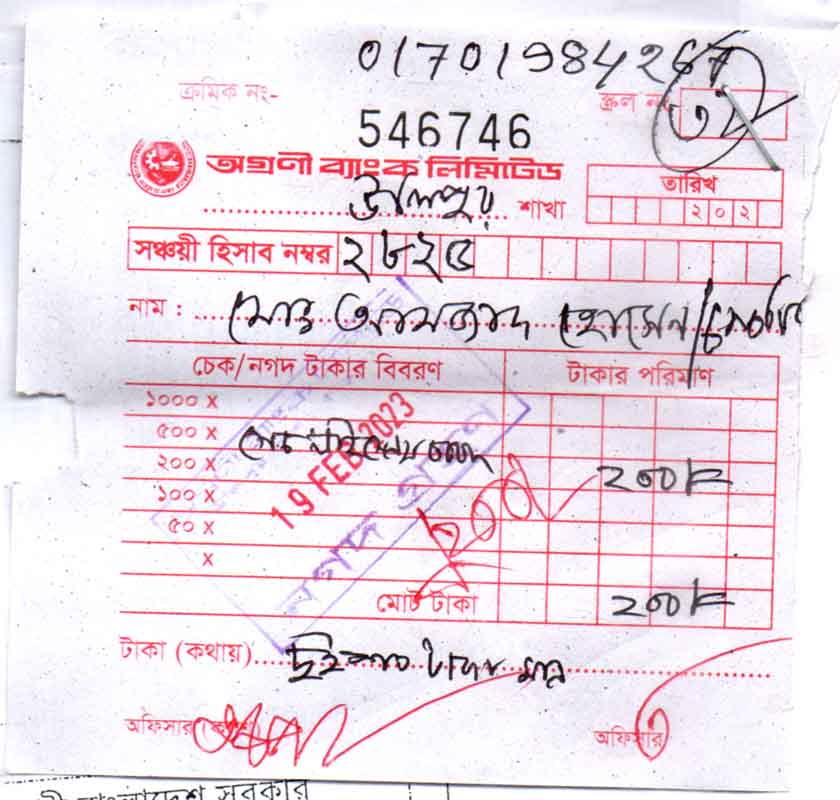 01701984267
ক্রমিক নং-
স্ক্রল নং
546746
অগ্রণী ব্যাংক লিমিটেড
উলিপুর শাখা
তারিখ
২০২
সঞ্চয়ী হিসাব নম্বর ২৮২৫
নাম : মোঃ আমজাদ হোসেন/
চেক/নগদ টাকার বিবরণ টাকার পরিমাণ
১০০০ x
৫০০ x
২০০ x ২০০/=
১০০ x
৫০ x
x
19 FEB 2023
নগদ গ্রহণ
২০০/
মোট টাকা ২০০/=
টাকা (কথায়) দুইশত টাকা মাত্র
অফিসার
অফিসার
বাংলাদেশ সরকার